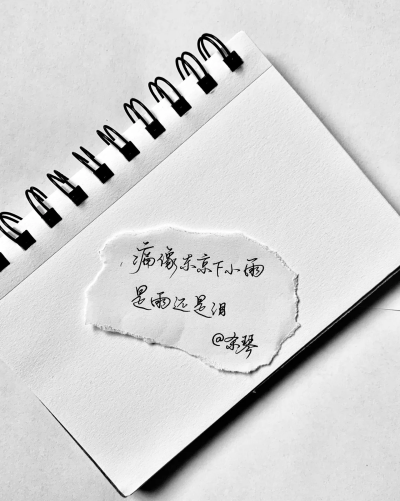 痛像东京下小雨
是雨还是泪
@京琴